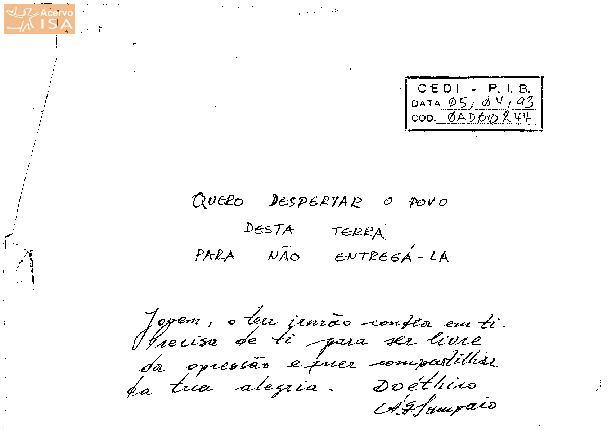 Acervo
ISA
CEDI - P.I.B.
DATA 05/04/93
COD. 0AD00244
QUERO DESPERTAR O POVO
DESTA TERRA
PARA NÃO ENTREGÁ-LA
Jovem, o teu irmão confia em ti.
Precisa de ti para ser livre
da opressão e quer compartilhar
da tua alegria. Doéthiro
Sampaio